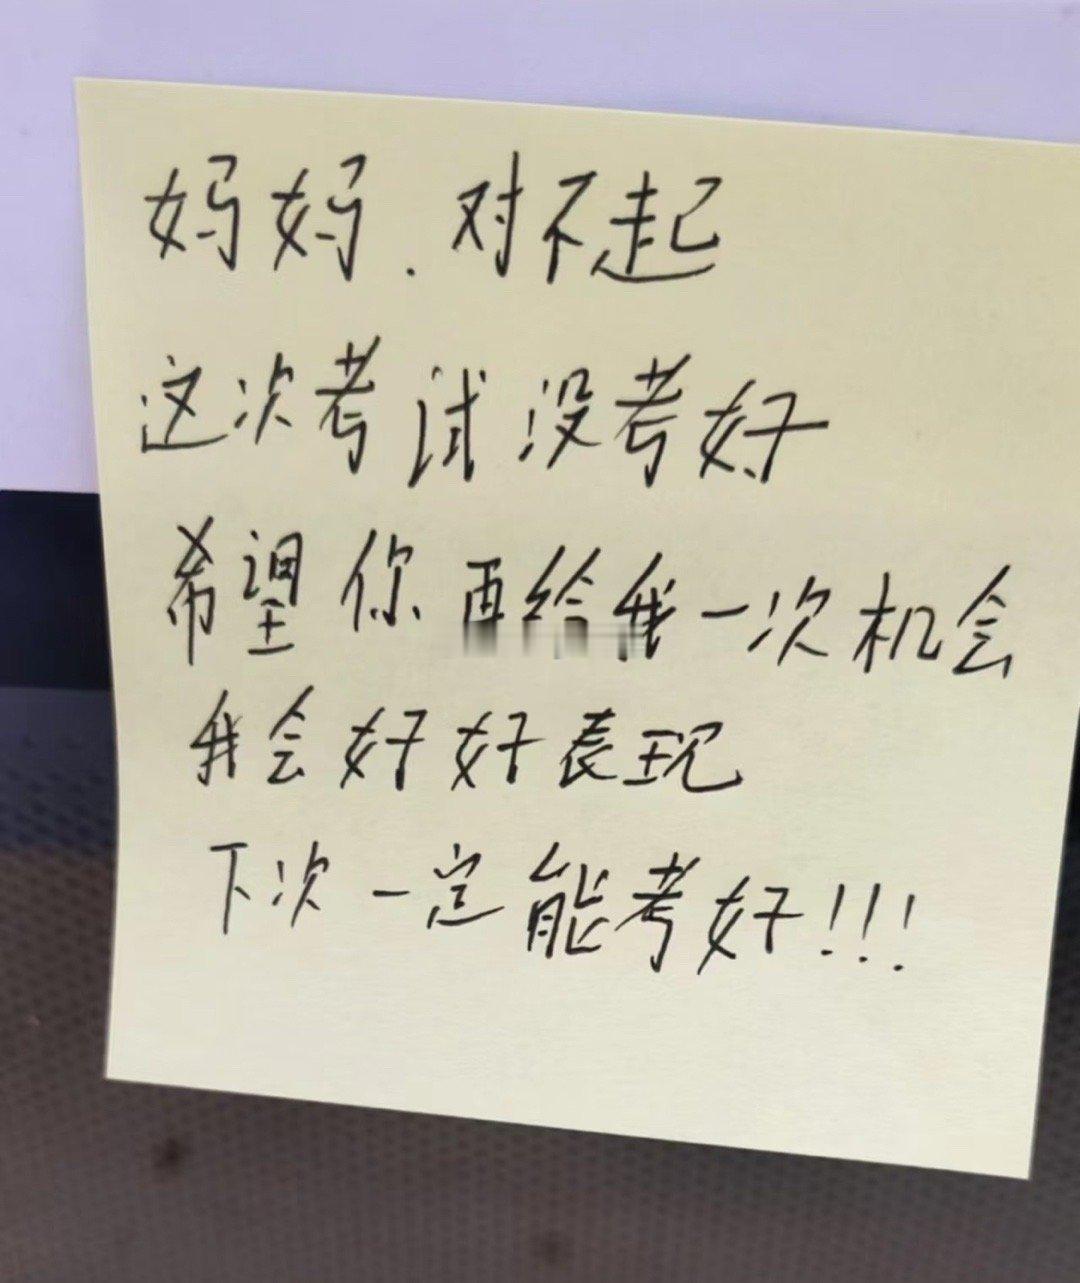 妈妈.对不起
这次考试没考好
希望你再给我一次机会
我会好好表现
下次一定能考好!!!